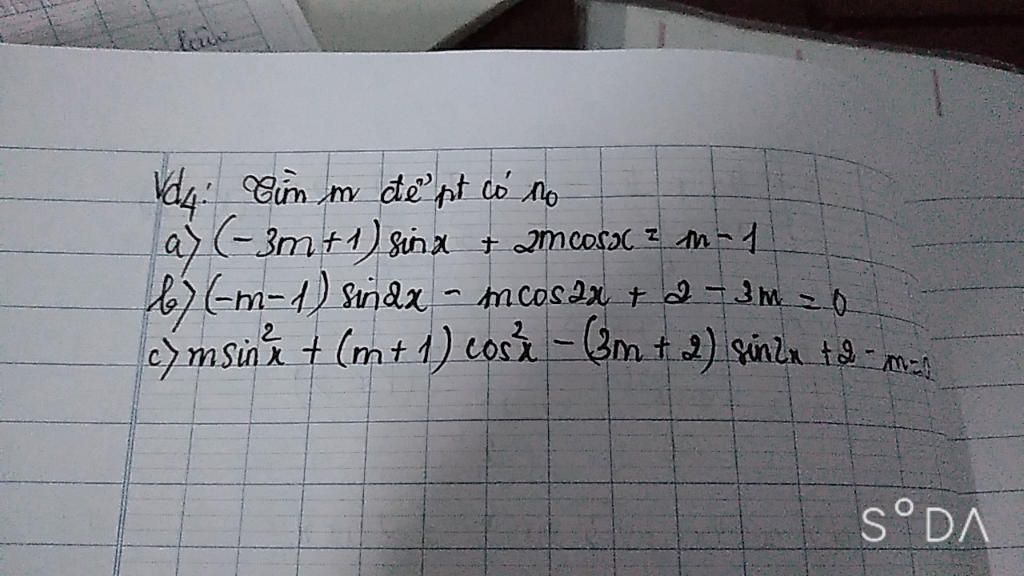 Vd4: Tìm m để pt có n0
a) (-3m+1) sinx + 2mcosx = m-1
b) (-m-1) sin2x - mcos2x + 2 - 3m = 0
c) msin²x + (m+1) cos²x - (3m+2) sin2x + 2 - m=0
S°DA